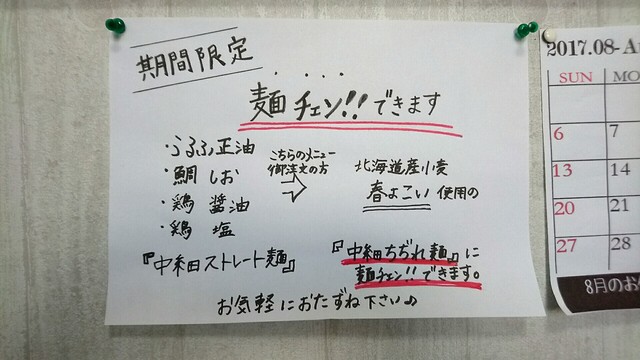 期間限定
麺チェン!!できます
・うるふ正油
・鯛しお
・鶏 醤油
・鶏 塩
『中細ストレート麺』
こちらのメニュー
御注文の方
北海道産小麦
春よこい 使用の
『中細ちぢれ麺』に
麺チェン!!できます。
お気軽におたずね下さい♪
2017.08-A
SUN MO
6 7
13 14
20 21
27 28
8月のお